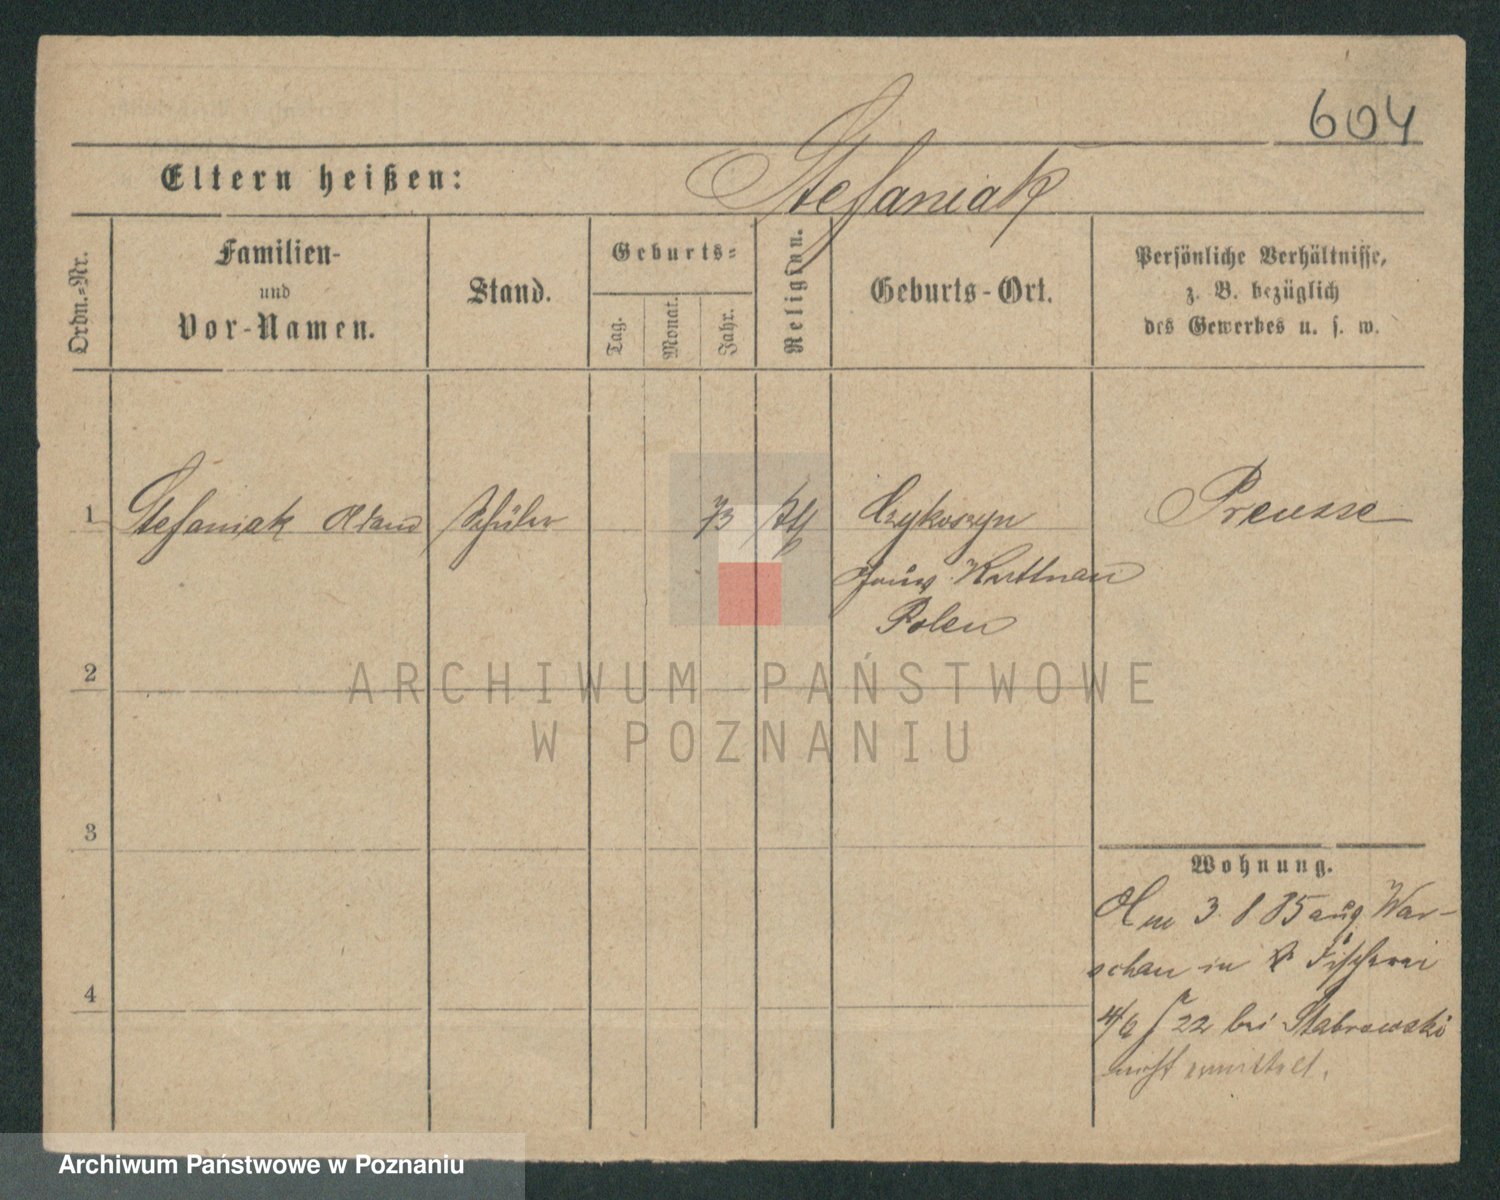 604
Eltern heißen: Stefaniak
Ordn.-Nr.
Familien-
und
Vor-Namen.
Stand.
Geburts-
Tag.
Monat.
Jahr.
Religion.
Geburts-Ort.
Persönliche Verhältnisse,
z. B. bezüglich
des Gewerbes u. s. w.
1 Stefaniak Adam Schüler 73 Czykoszyn Preusse
Polen
2
ARCHIWUM PAŃSTWOWE
W POZNANIU
3
Wohnung.
Am 3 8 85 aus War-
schau in Fischerei
4
22 bei Stabrowski
nicht ermittelt.
Archiwum Państwowe w Poznaniu